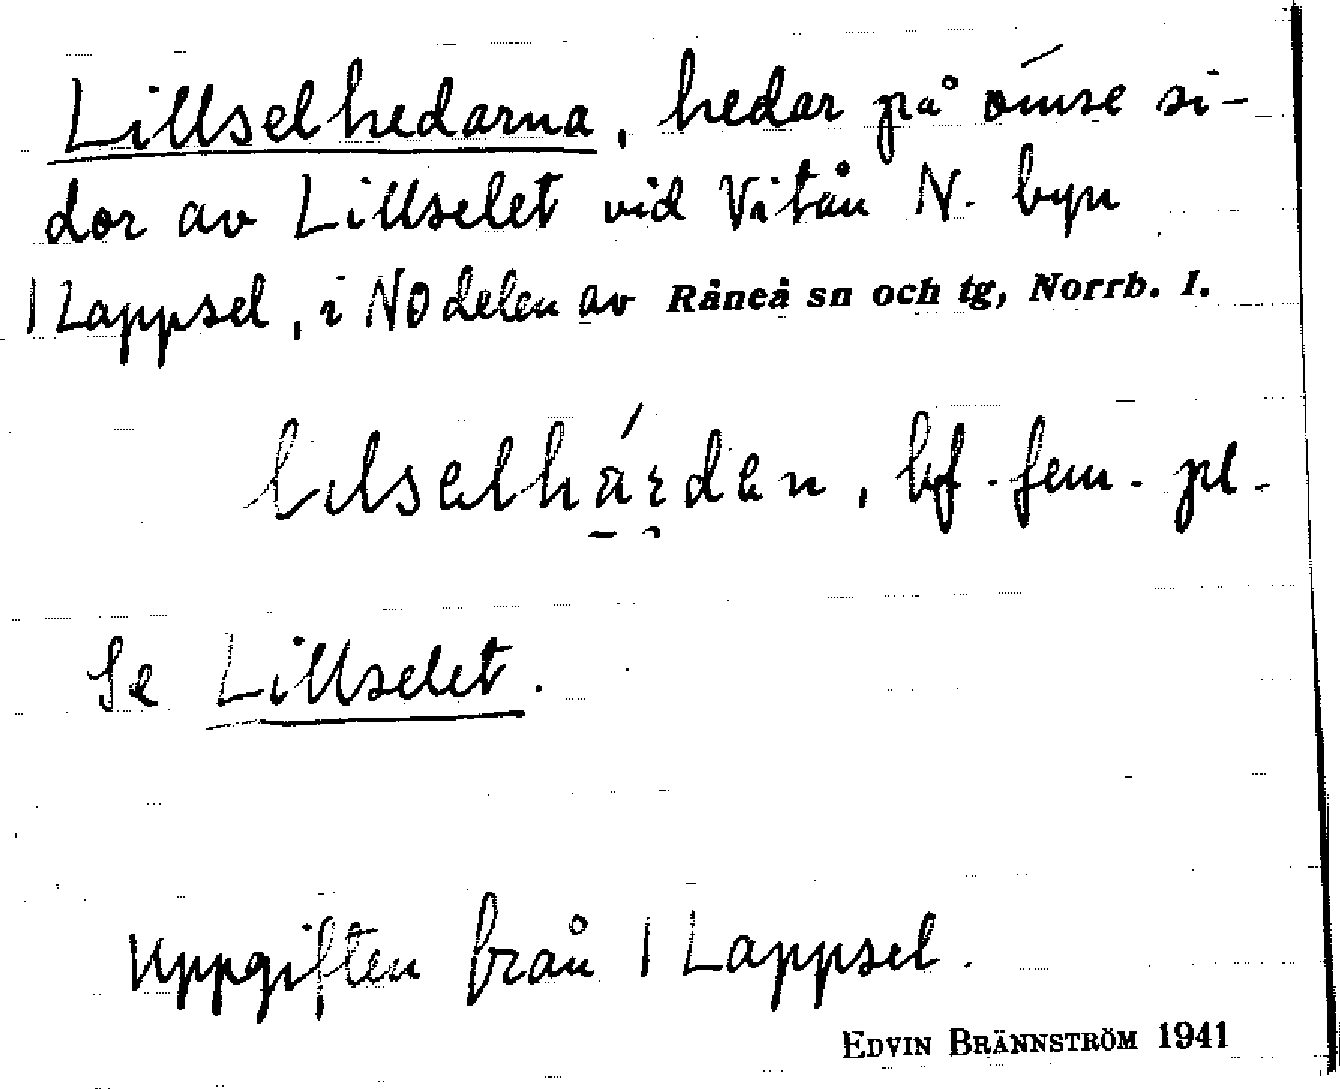 Lillselhedarna, hedar på ömse si-
dor av Lillselet vid Vitån N. byn
1 Lappsel, i NO delen av Råneå sn och tg, Norrb. l.
lilselhárdan, bf. fem. pl.
Se Lillselet.
Uppgiften från 1 Lappsel.
EDVIN BRÄNNSTRÖM 1941